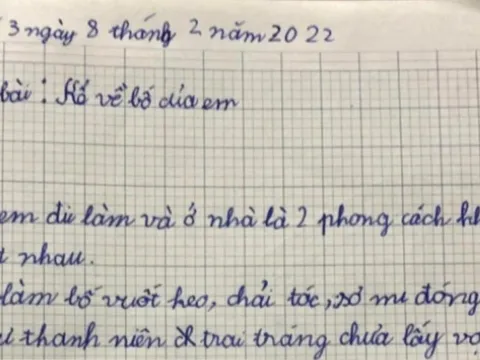 3 ngày 8 tháng 2 năm 2022
bài: Kể về bố của em
em đi làm và ở nhà là 2 phong cách
nhau.
làm bố vuốt keo, chải tóc, sơ mi đóng
thanh niên trai tráng chưa lấy vợ